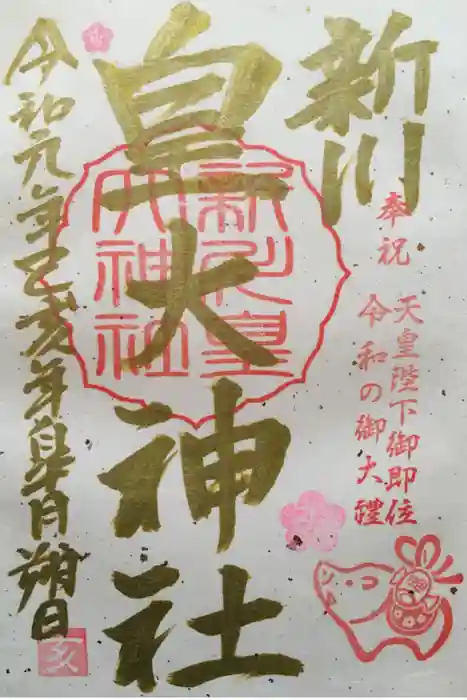 奉祝
天皇陛下御即位
令和の御大禮
新川
皇大神社
新川皇
大神社
令和元年己亥年皐月朔日
亥